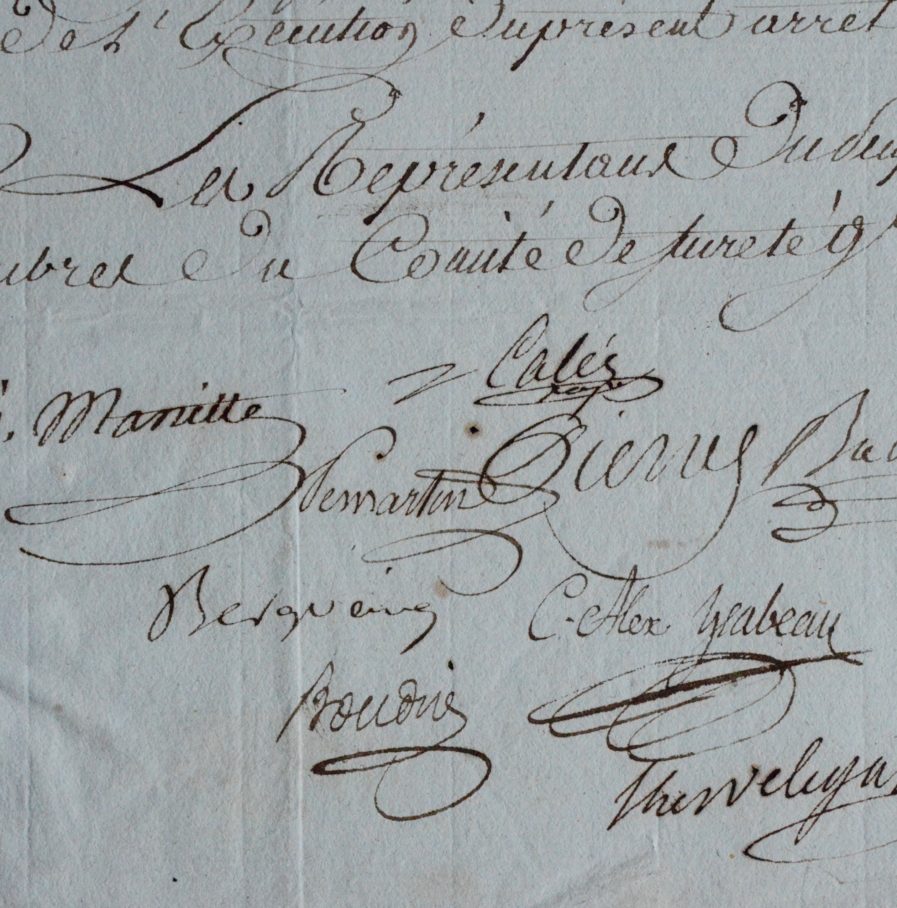 de l'Exécution du présent arret
Les Représentans du peup
mbres du Comité de sureté g
Calès
Mariette
Pemartin Pierret Ba
Bergoeing C. Alex Ysabeau
Boudin